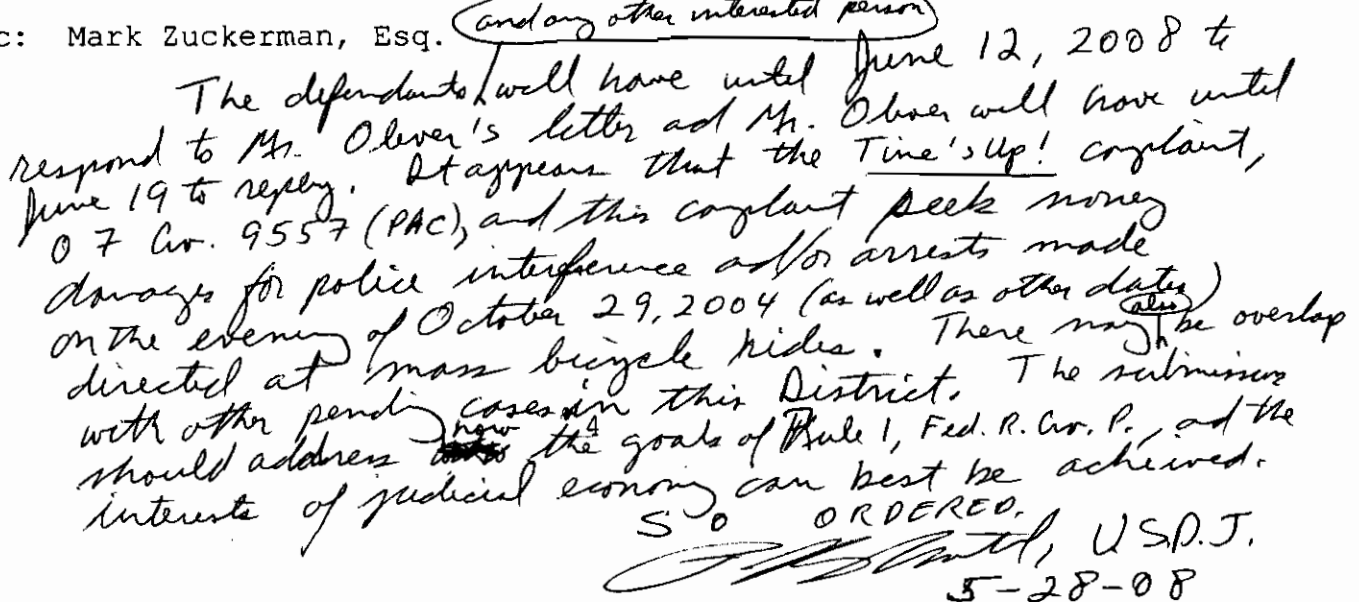 c: Mark Zuckerman, Esq. (and any other interested person)
The defendants will have until June 12, 2008 to
respond to Mr. Oliver's letter and Mr. Oliver will have until
June 19 to reply. It appears that the Time's Up! complaint,
07 Civ. 9557 (PAC), and this complaint seek money
damages for police interference and/or arrests made
on the evening of October 29, 2004 (as well as other dates)
directed at mass bicycle rides. There may also be overlap
with other pending cases in this District. The submissions
should address how the goals of Rule 1, Fed. R. Civ. P., and the
interests of judicial economy can best be acheived.
SO ORDERED.
U.S.D.J.
5-28-08
4